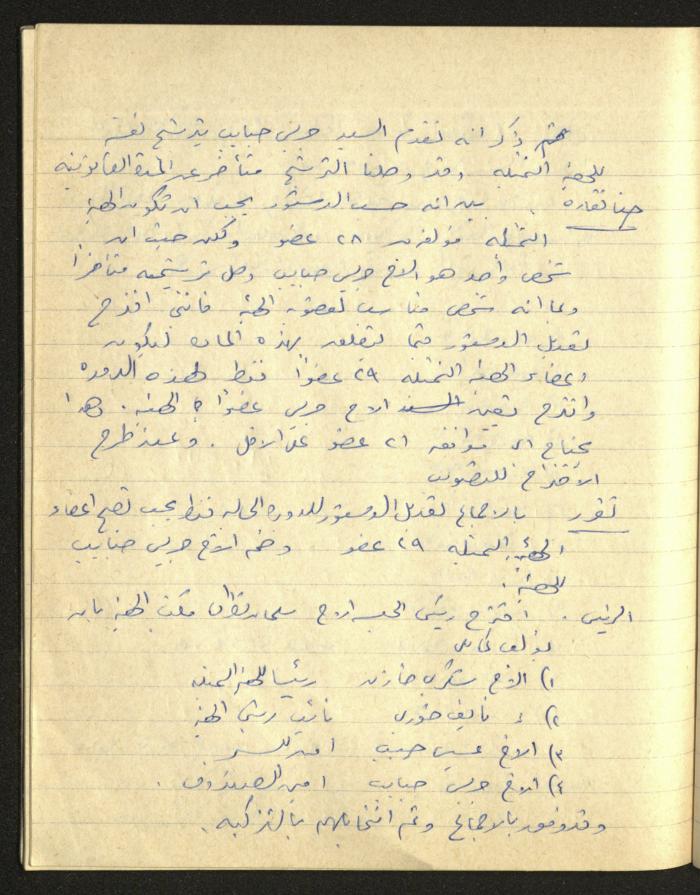 ثم ذكر انه تقدم السيد جريس حبايب يترشح نفسه
للهيئة التمثيليه وقد وصلنا الترشيح متأخر عن المدة القانونيه
حنا نقاره . بين انه حسب الدستور يجب ان تكون الهيئة
التمثيليه مؤلفه من ٢٨ عضو ولكن حيث ان
شخص واحد هو الاخ جريس حبايب وصل ترشيحه متأخراً
وبما انه شخص مناسب لعضوية الهيئة فانني اقترح
تعديل الدستور فيما يتعلق بهذه الماده ليكون
اعضاء الهيئة التمثيليه ٢٩ عضواً فقط لهذه الدوره
واقترح تعيين الاخ جريس عضواً في الهيئه . وهذا
يحتاج الى موافقة ٢١ عضو على الاقل . وعند طرح
الاقتراح للتصويت
تقرر بالاجماع تعديل الدستور للدوره الحاليه فقط بحيث تصبح اعضاء
الهيئة التمثيليه ٢٩ عضو وضم الاخ جريس حبايب
للهيئة .
الرئيس . اقترح رئيس الجلسه الاخ سلمان مكتب الهيئة بان
يؤلف كما يلي
١) الاخ شكري خازن رئيسا للهيئة التمثيليه
٢) " نايف خوري نائب رئيس الهيئة
٣) الاخ حبيب امين للسر
٤) الاخ جريس حبايب امين للصندوق .
وقد ووفق بالاجماع وتم انتخابهم بالتزكيه .